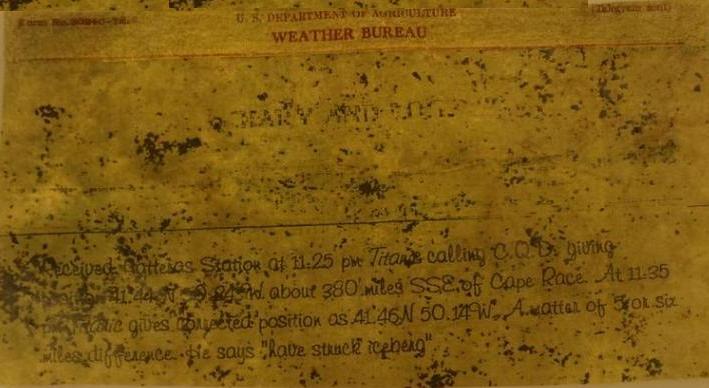 Form No.
(Telegram sent)
U. S. DEPARTMENT OF AGRICULTURE
WEATHER BUREAU
DIARY AND
Received Hatteras Station at 11:25 pm Titanic calling C.Q.D. giving
position 41.44N 50.24W about 380 miles SSE of Cape Race. At 11:35
pm Titanic gives corrected position as 41.46N 50.14W. A matter of 5 or six
miles difference. He says "have struck iceberg"